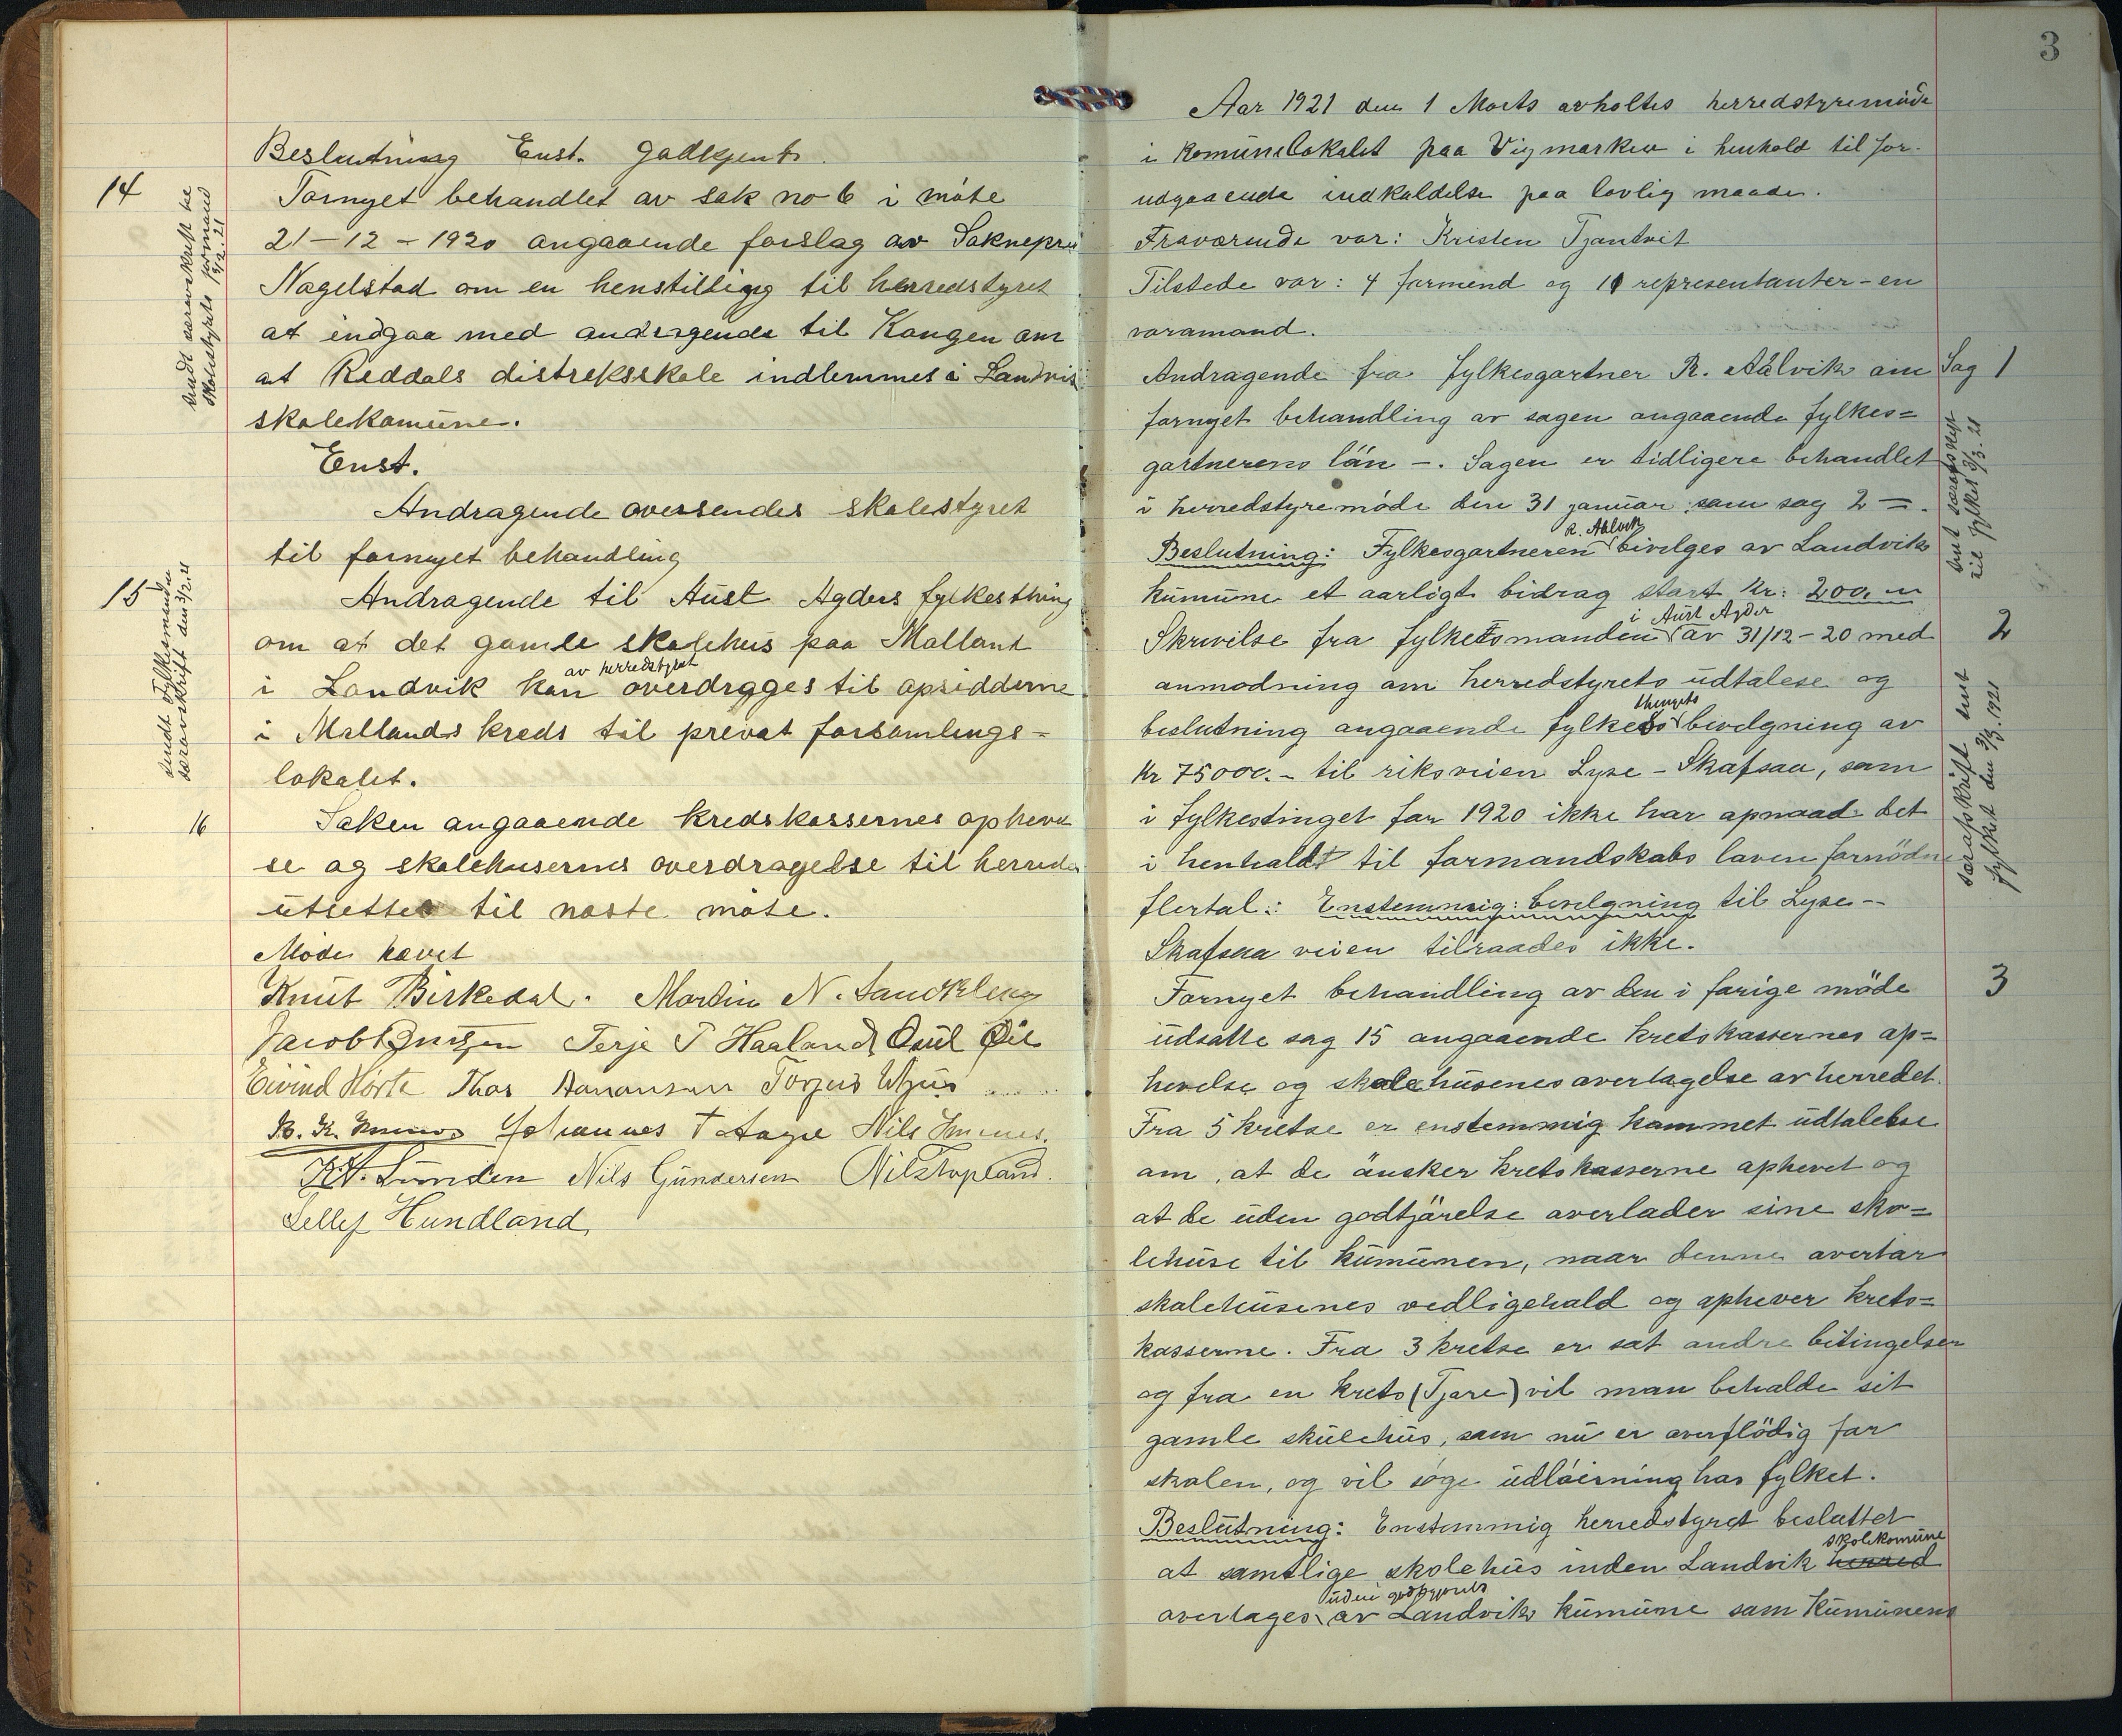 Beslutning Enst. godkjent.
14
Fornyet behandlet av sak no 6 i møte
21-12-1920 angaaende forslag av
Nagelstad om en henstilling til herredstyret
at indgaa med andragende til Kongen om
at Reddals distriksskole indlemmes i Landvik
skolekomune.
Enst.
Andragende oversendes skolestyret
til fornyet behandling
sendt særavskrift til
skolestyrets formand
15
Andragende til Aust Agders fylkesthing
om at det gamle skolehus paa Malland
av herredstyret
i Landvik kan overdrages til opsidderne
i Mallands kreds til prevat forsamlings-
lokalet.
sendt Fylkesmanden
særavskrift den 3/2.21
16
Saken angaaende kredskassernes opheve
se og skolehusernes overdragelse til herreds
utsettes til næste møte.
Møde hævet
Knut Birkedal. Martin N.
Jacob Terje T Haaland
Eivind Hørte Thor Torjus
Johannes T Nils
Nils Gundersen Nils Topland.
Sellef Hundland
3
Aar 1921 den 1 Marts avholtes herredstyremøde
i komunelokalet paa Vigmarken i henhold til for-
udgaaende indkaldelse paa lovlig maade.
Fraværende var: Kristen Tjantveit
Tilstede var: 4 formend og 11 representanter - en
varamand.
Sag 1
Andragende fra fylkesgartner R. Aålvik om
fornyet behandling av sagen angaaende fylkes=
gartnerens län -. Sagen er tidligere behandlet
i herredstyremöde den 31 januar som sag 2 =.
R. Aalvik
Beslutning: Fylkesgartneren bivelges av Landvik
kumune et aarligt bidrag stort kr: 200,-
til fylket 3/3.21
2
i Aust Agder
Skrivelse fra fylkesmanden av 31/12-20 med
anmodning om herredstyrets udtalese og
thingets
beslutning angaaende fylkes bevelgning av
Kr 75000.- til riksveien Lyse - Skafsaa, som
i fylkestinget for 1920 ikke har opnaad det
i henhaldt til formandskabs loven fornödne
flertal: Enstemmig: bevelgning til Lyse-
Skafsaa veien tilraades ikke.
særafskrift sent
fylket den 3/3.1921
3
Fornyet behandling av den i forige möde
udsatte sag 15 angaaende kretskassernes op=
hevelse og skolehusenes overtagelse av herredet.
Fra 5 kretse er enstemmig kommet udtalelse
om, at de önsker kretskasserne ophevet og
at de uden godtjörelse overlader sine sko=
lehuse til kumunen, naar denne overtar
skolehusenes vedligehald og ophever krets=
kasserne. Fra 3 kretse er sat andre bitingelser
og fra en krets (Tjore) vil man behalde sit
gamle skulehus, som nu er overflödig for
skolen, og vil söge udlösning hos fylket.
Beslutning: Enstemmig herredstyret besluttet
skolekomune
at samtlige skolehus inden Landvik herred
uden godtgjørels
overtages av Landvik kumune som Kumunens